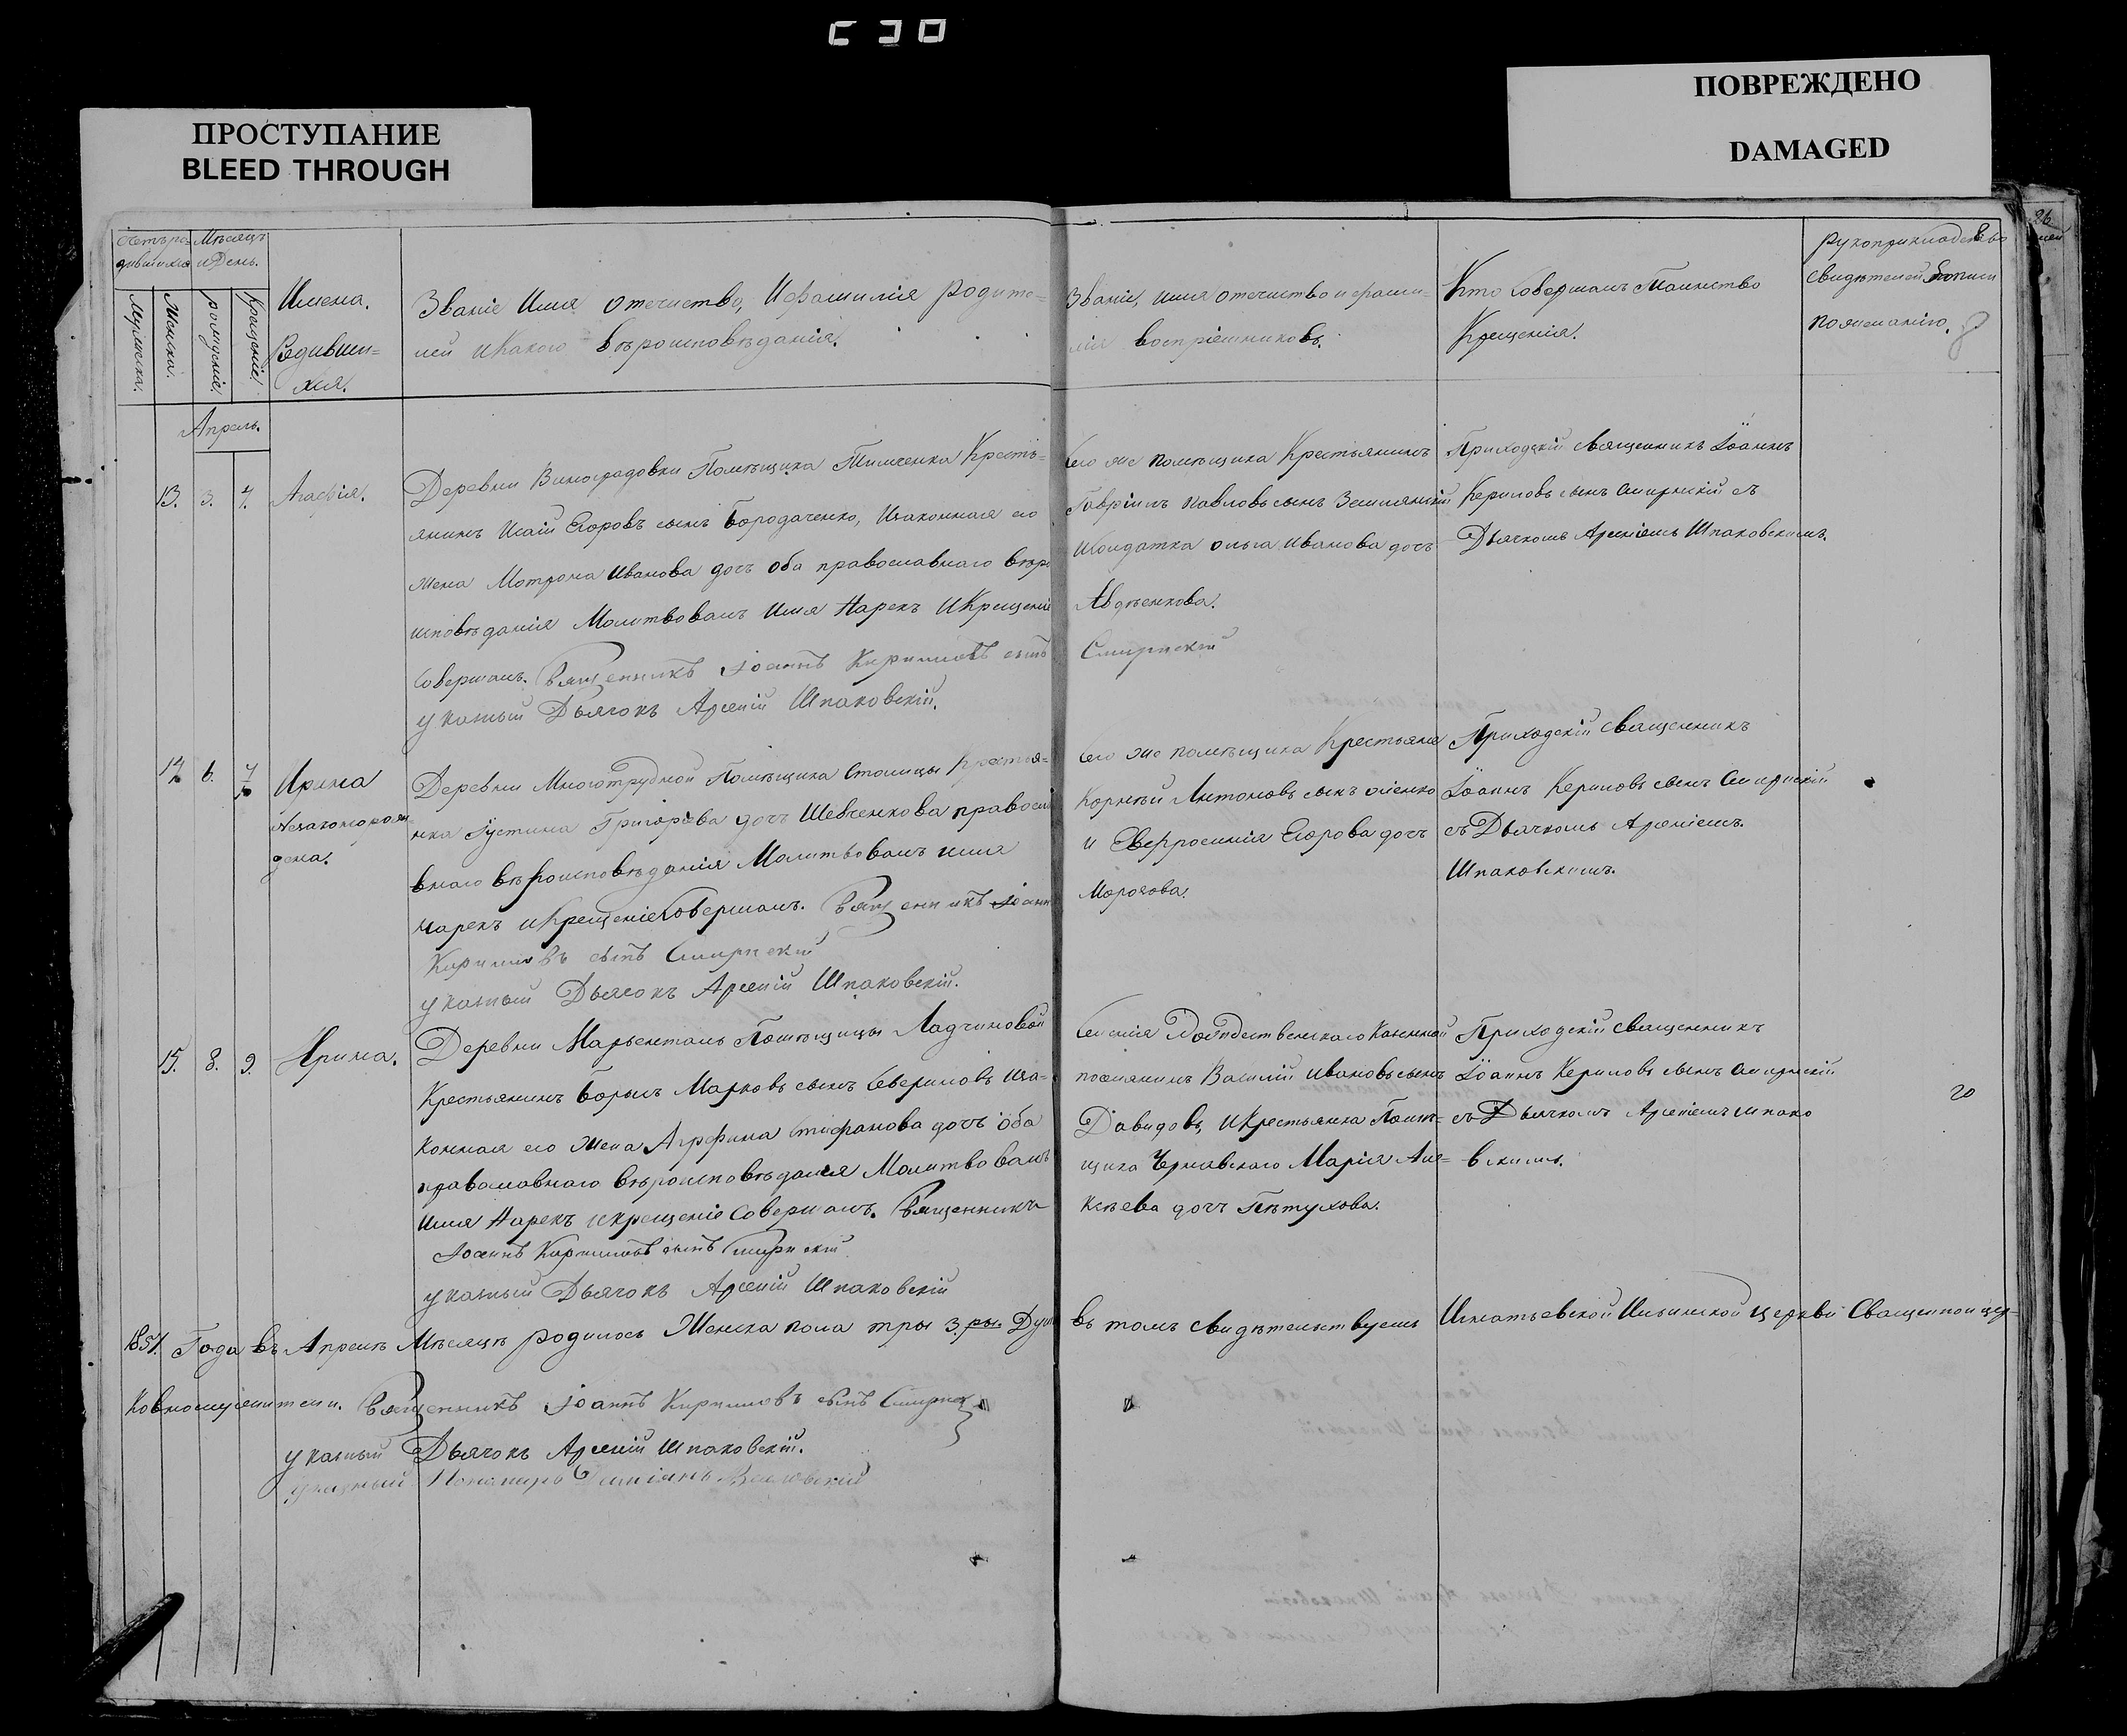 ПРОСТУПАНИЕ
BLEED THROUGH
ПОВРЕЖДЕНО
DAMAGED
26
Счетъ ро-
дившихся
Мѣсяцъ
и День.
Мужеска.
Женска.
рожденіе.
Крещеніе.
Имена.
Родивши=
хся.
Званіе Имя отечиство, Ифамилія родите=
лей икакого вѣроисповѣданія.
Званіе, имя отечиство ифами=
лія воспріемниковъ.
Кто Совершалъ Таинство
Крещенія.
рукоприкладство
свидѣтелей
пожеланію.
Апрель.
13. 3. 4. Агафія.
Деревни Виноградовки Помѣщика Тимченка Кресть=
янинъ Исаій Егоровъ сынъ Бородаченко, Изаконная его
жена Мотрона Иванова дочъ оба православнаго вѣро
исповѣданія Молитвовалъ имя Нарекъ Икрещеніе
Совершалъ. Священникъ Іоаннъ Кириловъ сынъ
Смирнскій
указный Дьячокъ Арсеній Шпаковскій.
Сего же помѣщика Крестьянинъ
Гавріилъ Павловъ сынъ Землянскій
Исолдатка ольга Иванова дочъ
Авдѣенкова.
Приходскій священникъ Іоаннъ
Кериловъ сынъ Смирнскій съ
Дьячкомъ Арсеніемъ Шпаковскимъ.
14 6. 7 Ирина
Незаконорож
дена.
Деревни Многотрудной Помѣщика Столицы Крестья=
нка Іустина Григорьева дочъ Шевченкова правосла
внаго вѣроисповѣданія Молитвовалъ имя
нарекъ икрещеніе Совершалъ. Священникъ Іоаннъ
Кириловъ сынъ Смирнскій
указный Дьячокъ Арсеній Шпаковскій.
Сего же помѣщика Крестьяне
Корнѣй Антоновъ сынъ
и Евфросинія Егорова дочъ
Морозова.
Приходскій священникъ
Іоаннъ Кериловъ сынъ Смирнскій
съ Дьячкомъ Арсеніемъ
Шпаковскимъ.
15. 8. 9. Ирина.
Деревни Марьенталь Помѣщицы Ладчиновой
Крестьянинъ Борысъ Марковъ сынъ Севериновъ Иза=
конная его жена Агрфина Стифанова дочъ оба
православнаго вѣроисповѣданія Молитвовалъ
имя Нарекъ икрещеніе Совершалъ. Священникъ
Іоаннъ Кириловъ сынъ Смирнскій
указный Дьячокъ Арсеній Шпаковскій
Селенія Рождественскаго Казенной
поселянинъ Василій Ивановъ сынъ
Давидовъ, Икрестьянка Помѣ=
щика Чернявскаго Марія Але=
ксѣева дочъ Пѣтухова.
Приходскій священникъ
Іоаннъ Кериловъ сынъ Смирнскій
съ Дьячкомъ Арсеніемъ Шпако
вскимъ.
20
1851. Года въ Апрелѣ Мѣсяцѣ родилось Женска пола тры 3. ры. Душы въ томъ свидѣтельствуемъ Игнатьевской Ильинской церкви Священноцер-
ковнослужители. Священникъ Іоаннъ Кириловъ сынъ Смирнск
указный Дьячокъ Арсеній Шпаковскій.
указный Пономарь